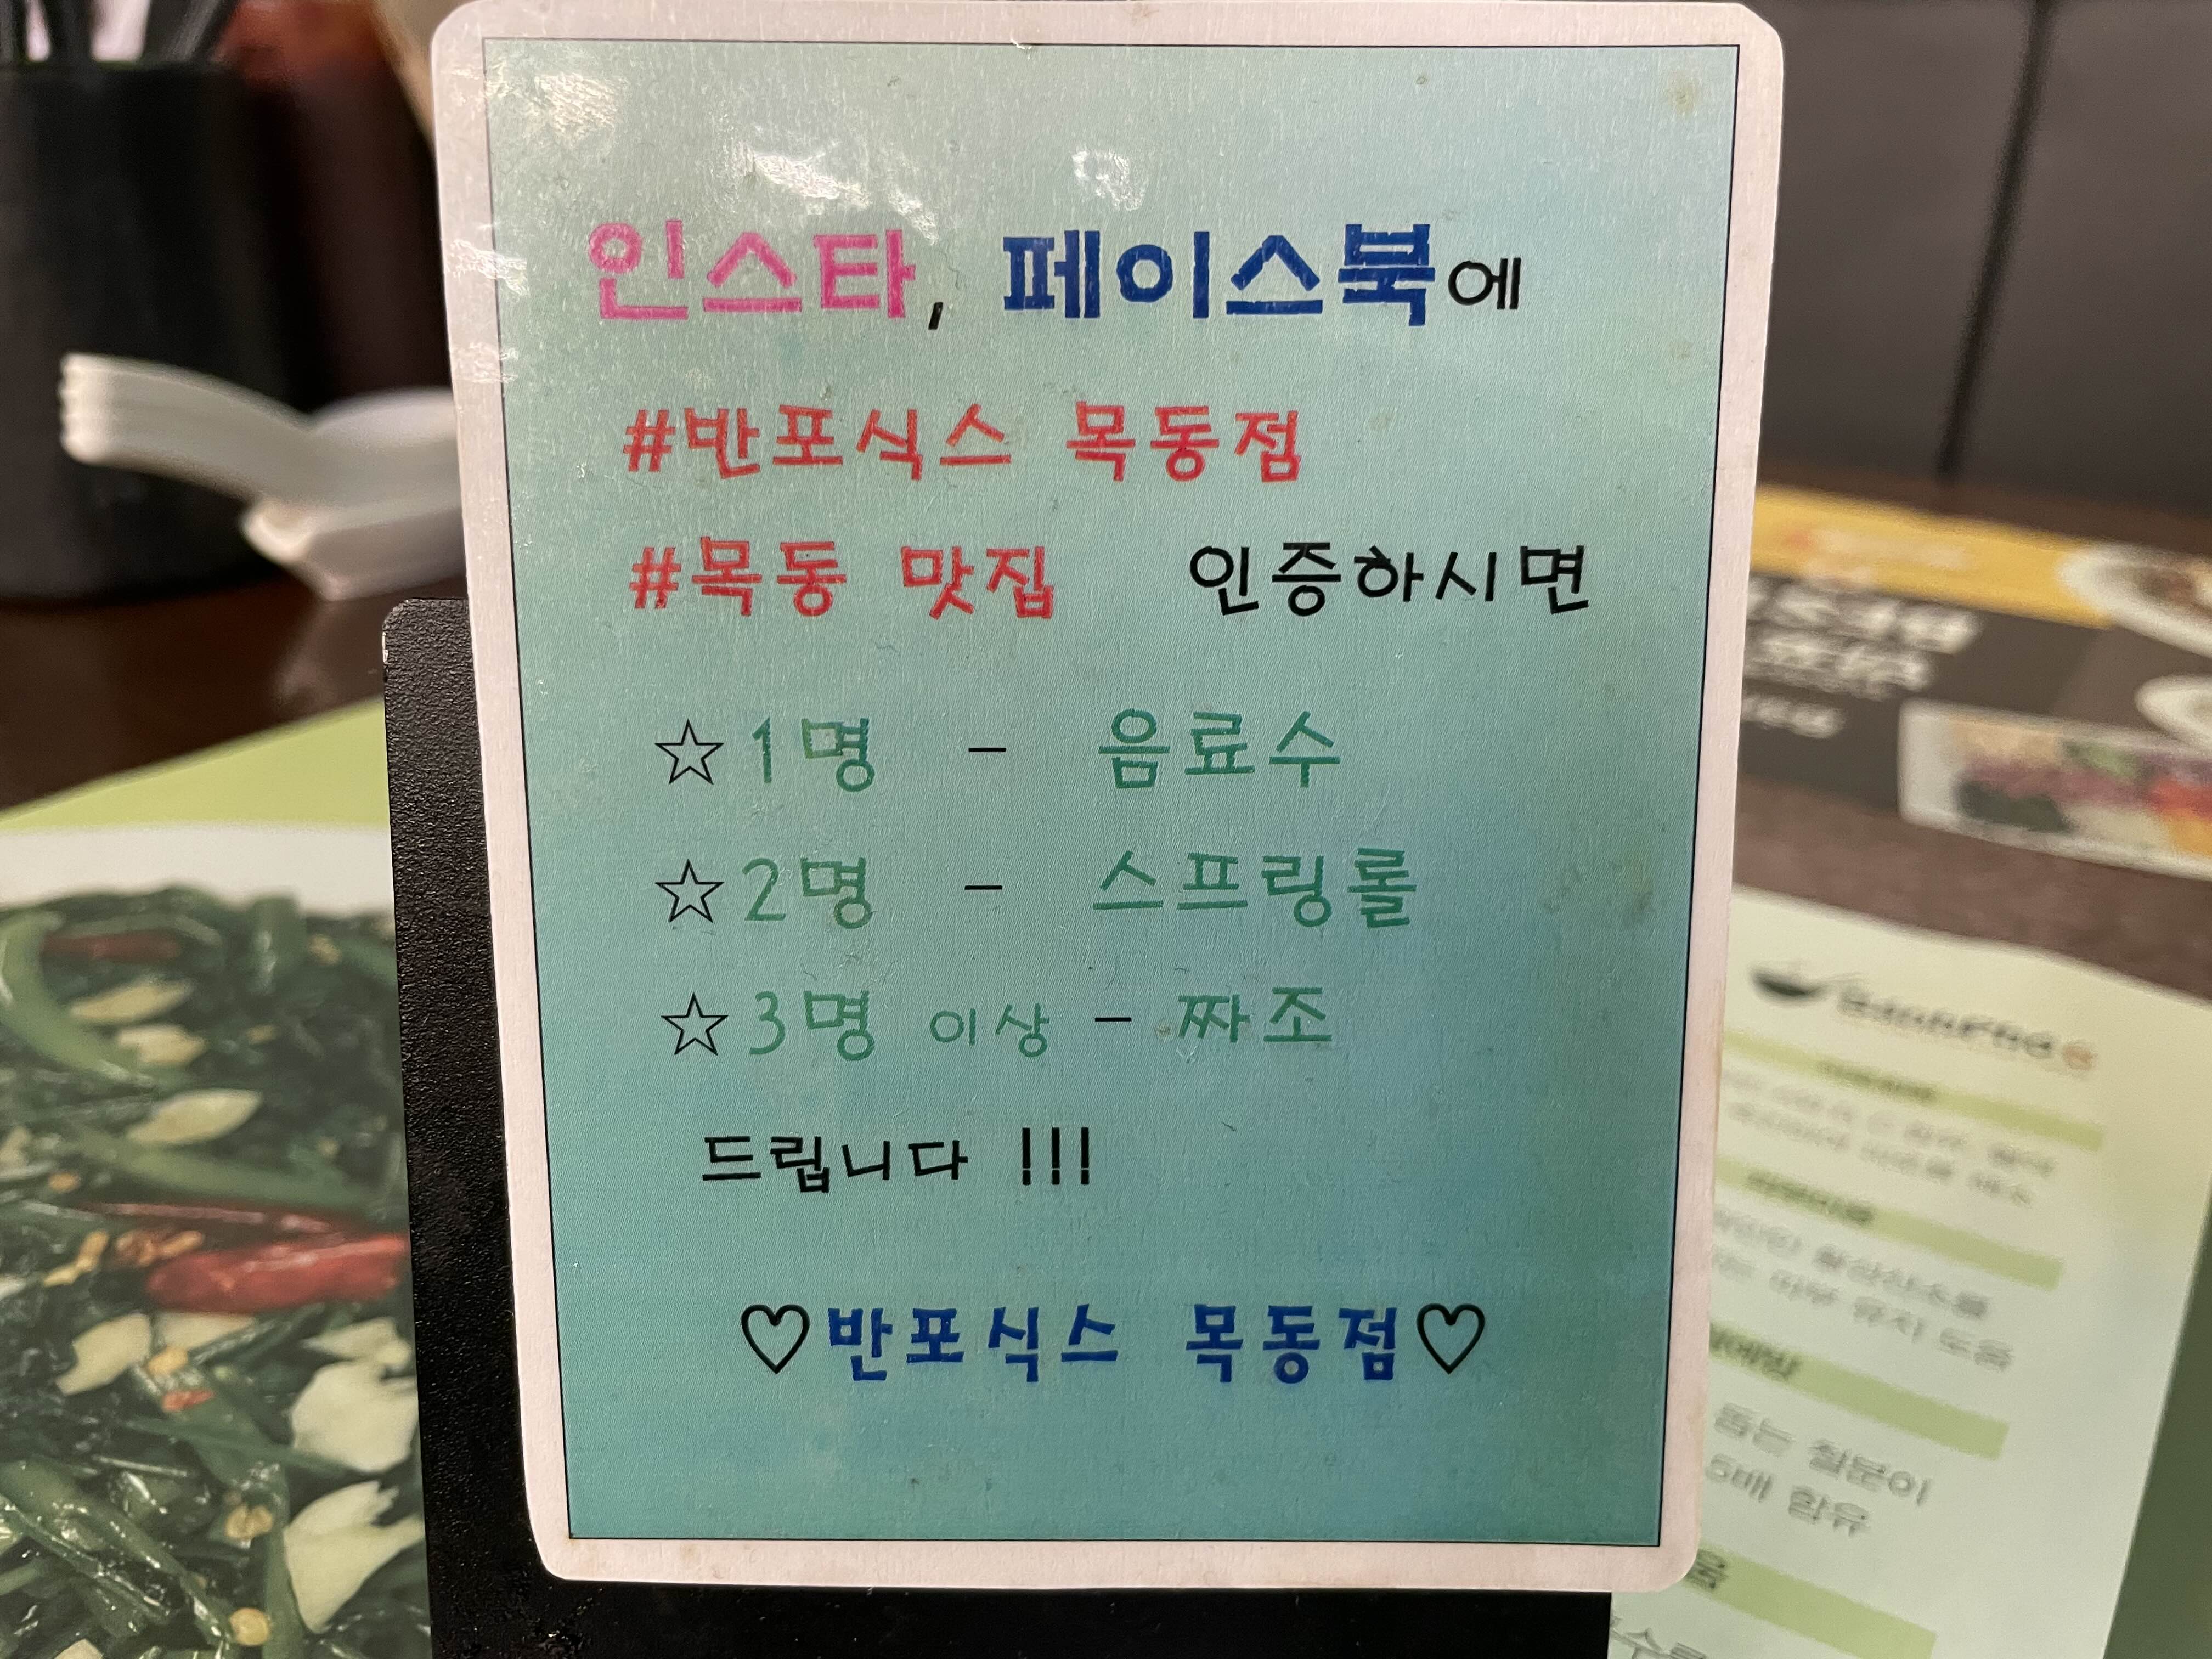 인스타, 페이스북에
#반포식스 목동점
#목동 맛집 인증하시면
☆1명 - 음료수
☆2명 - 스프링롤
☆3명 이상 - 짜조
드립니다 !!!
♡반포식스 목동점♡
돕는 철분이
5배 함유